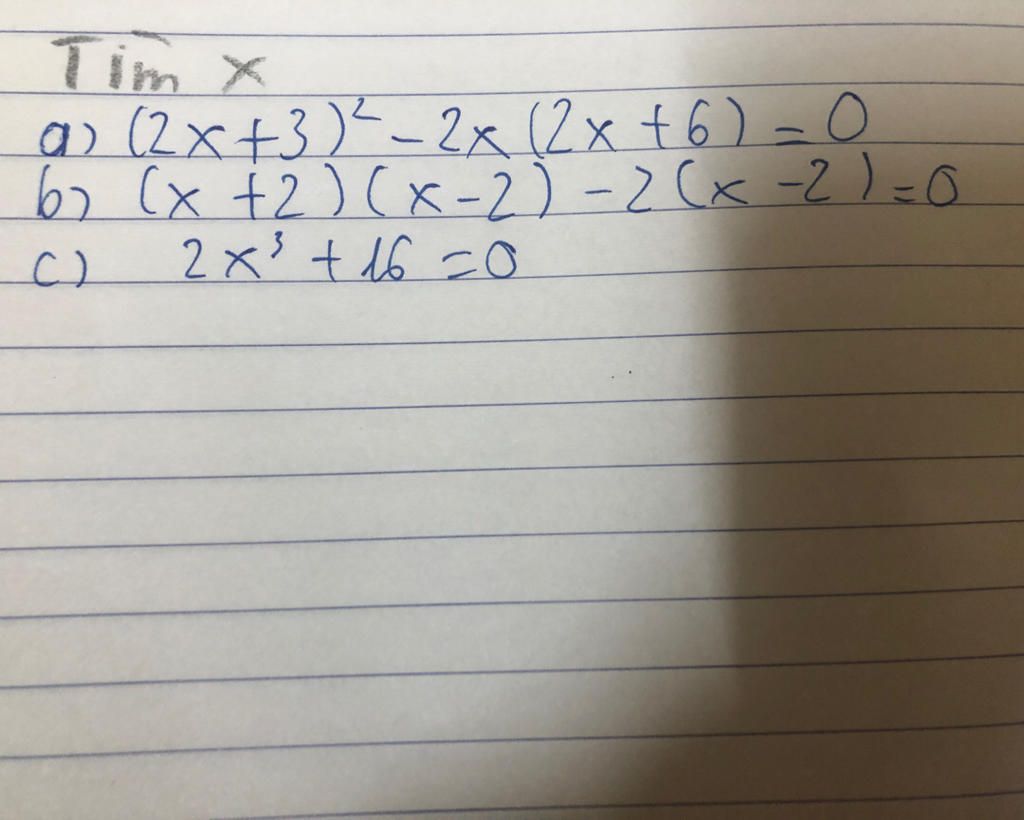 Tìm x
a) (2x+3)² - 2x (2x+6) = 0
b) (x+2)(x-2) - 2(x-2) = 0
c) 2x³ + 16 = 0